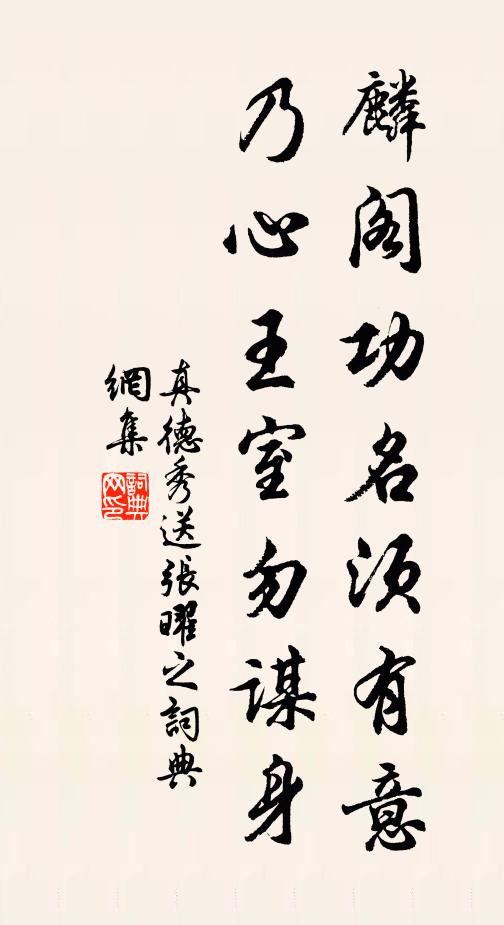 麟阁功名须有意
乃心王室勿謀身
真德秀送張曜之詞典
網集
詞典
网印